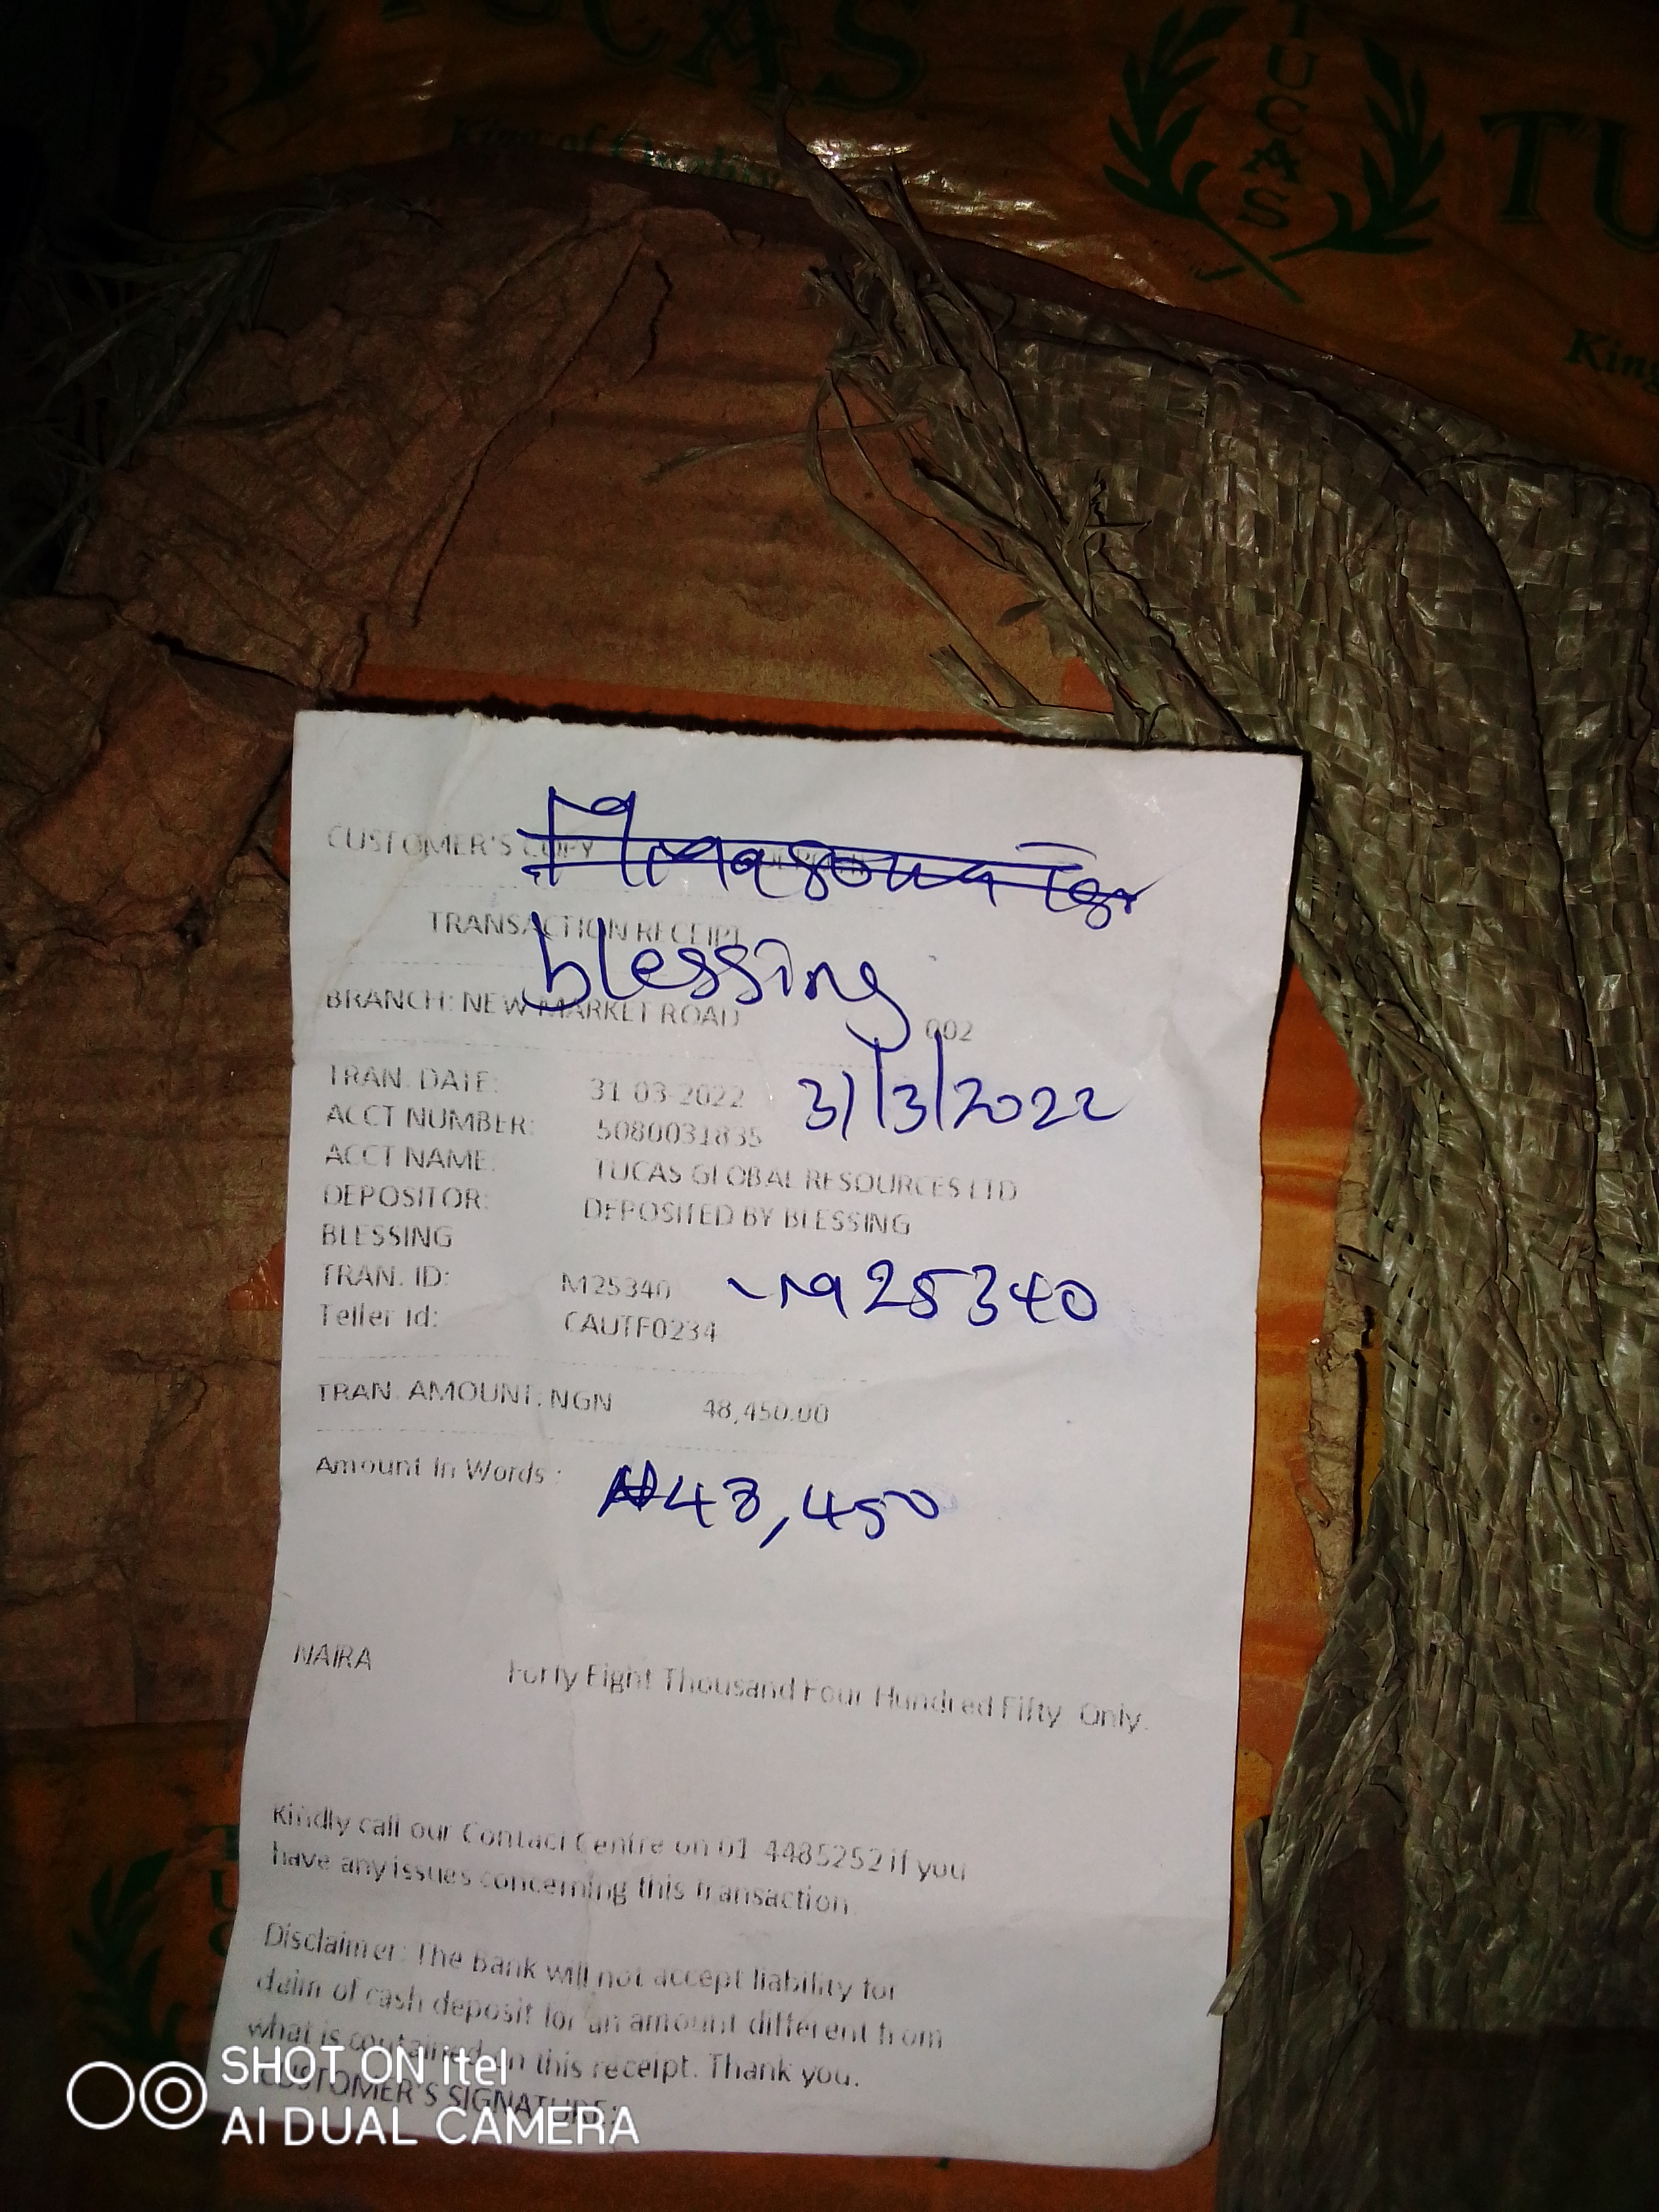 TUCAS
King of Quality
TUCAS
TU
King
CUSTOMER'S COPY
TRANSACTION RECEIPT
blessing
BRANCH: NEW MARKET ROAD
002
TRAN. DATE: 31-03-2022 31/3/2022
ACCT NUMBER: 5080031835
ACCT NAME: TUCAS GLOBAL RESOURCES LTD
DEPOSITOR: DEPOSITED BY BLESSING
BLESSING
TRAN. ID: M25340 M25340
Teller Id: CAUTF0234
TRAN. AMOUNT: NGN 48,450.00
Amount In Words : ₦48,450
NAIRA Forty Eight Thousand Four Hundred Fifty Only.
Kindly call our Contact Centre on 01 4485252 if you
have any issues concerning this transaction
Disclaimer: The Bank will not accept liability for
claim of cash deposit for an amount different from
what is contained on this receipt. Thank you.
CUSTOMER'S SIGNATURE:
SHOT ON itel
AI DUAL CAMERA